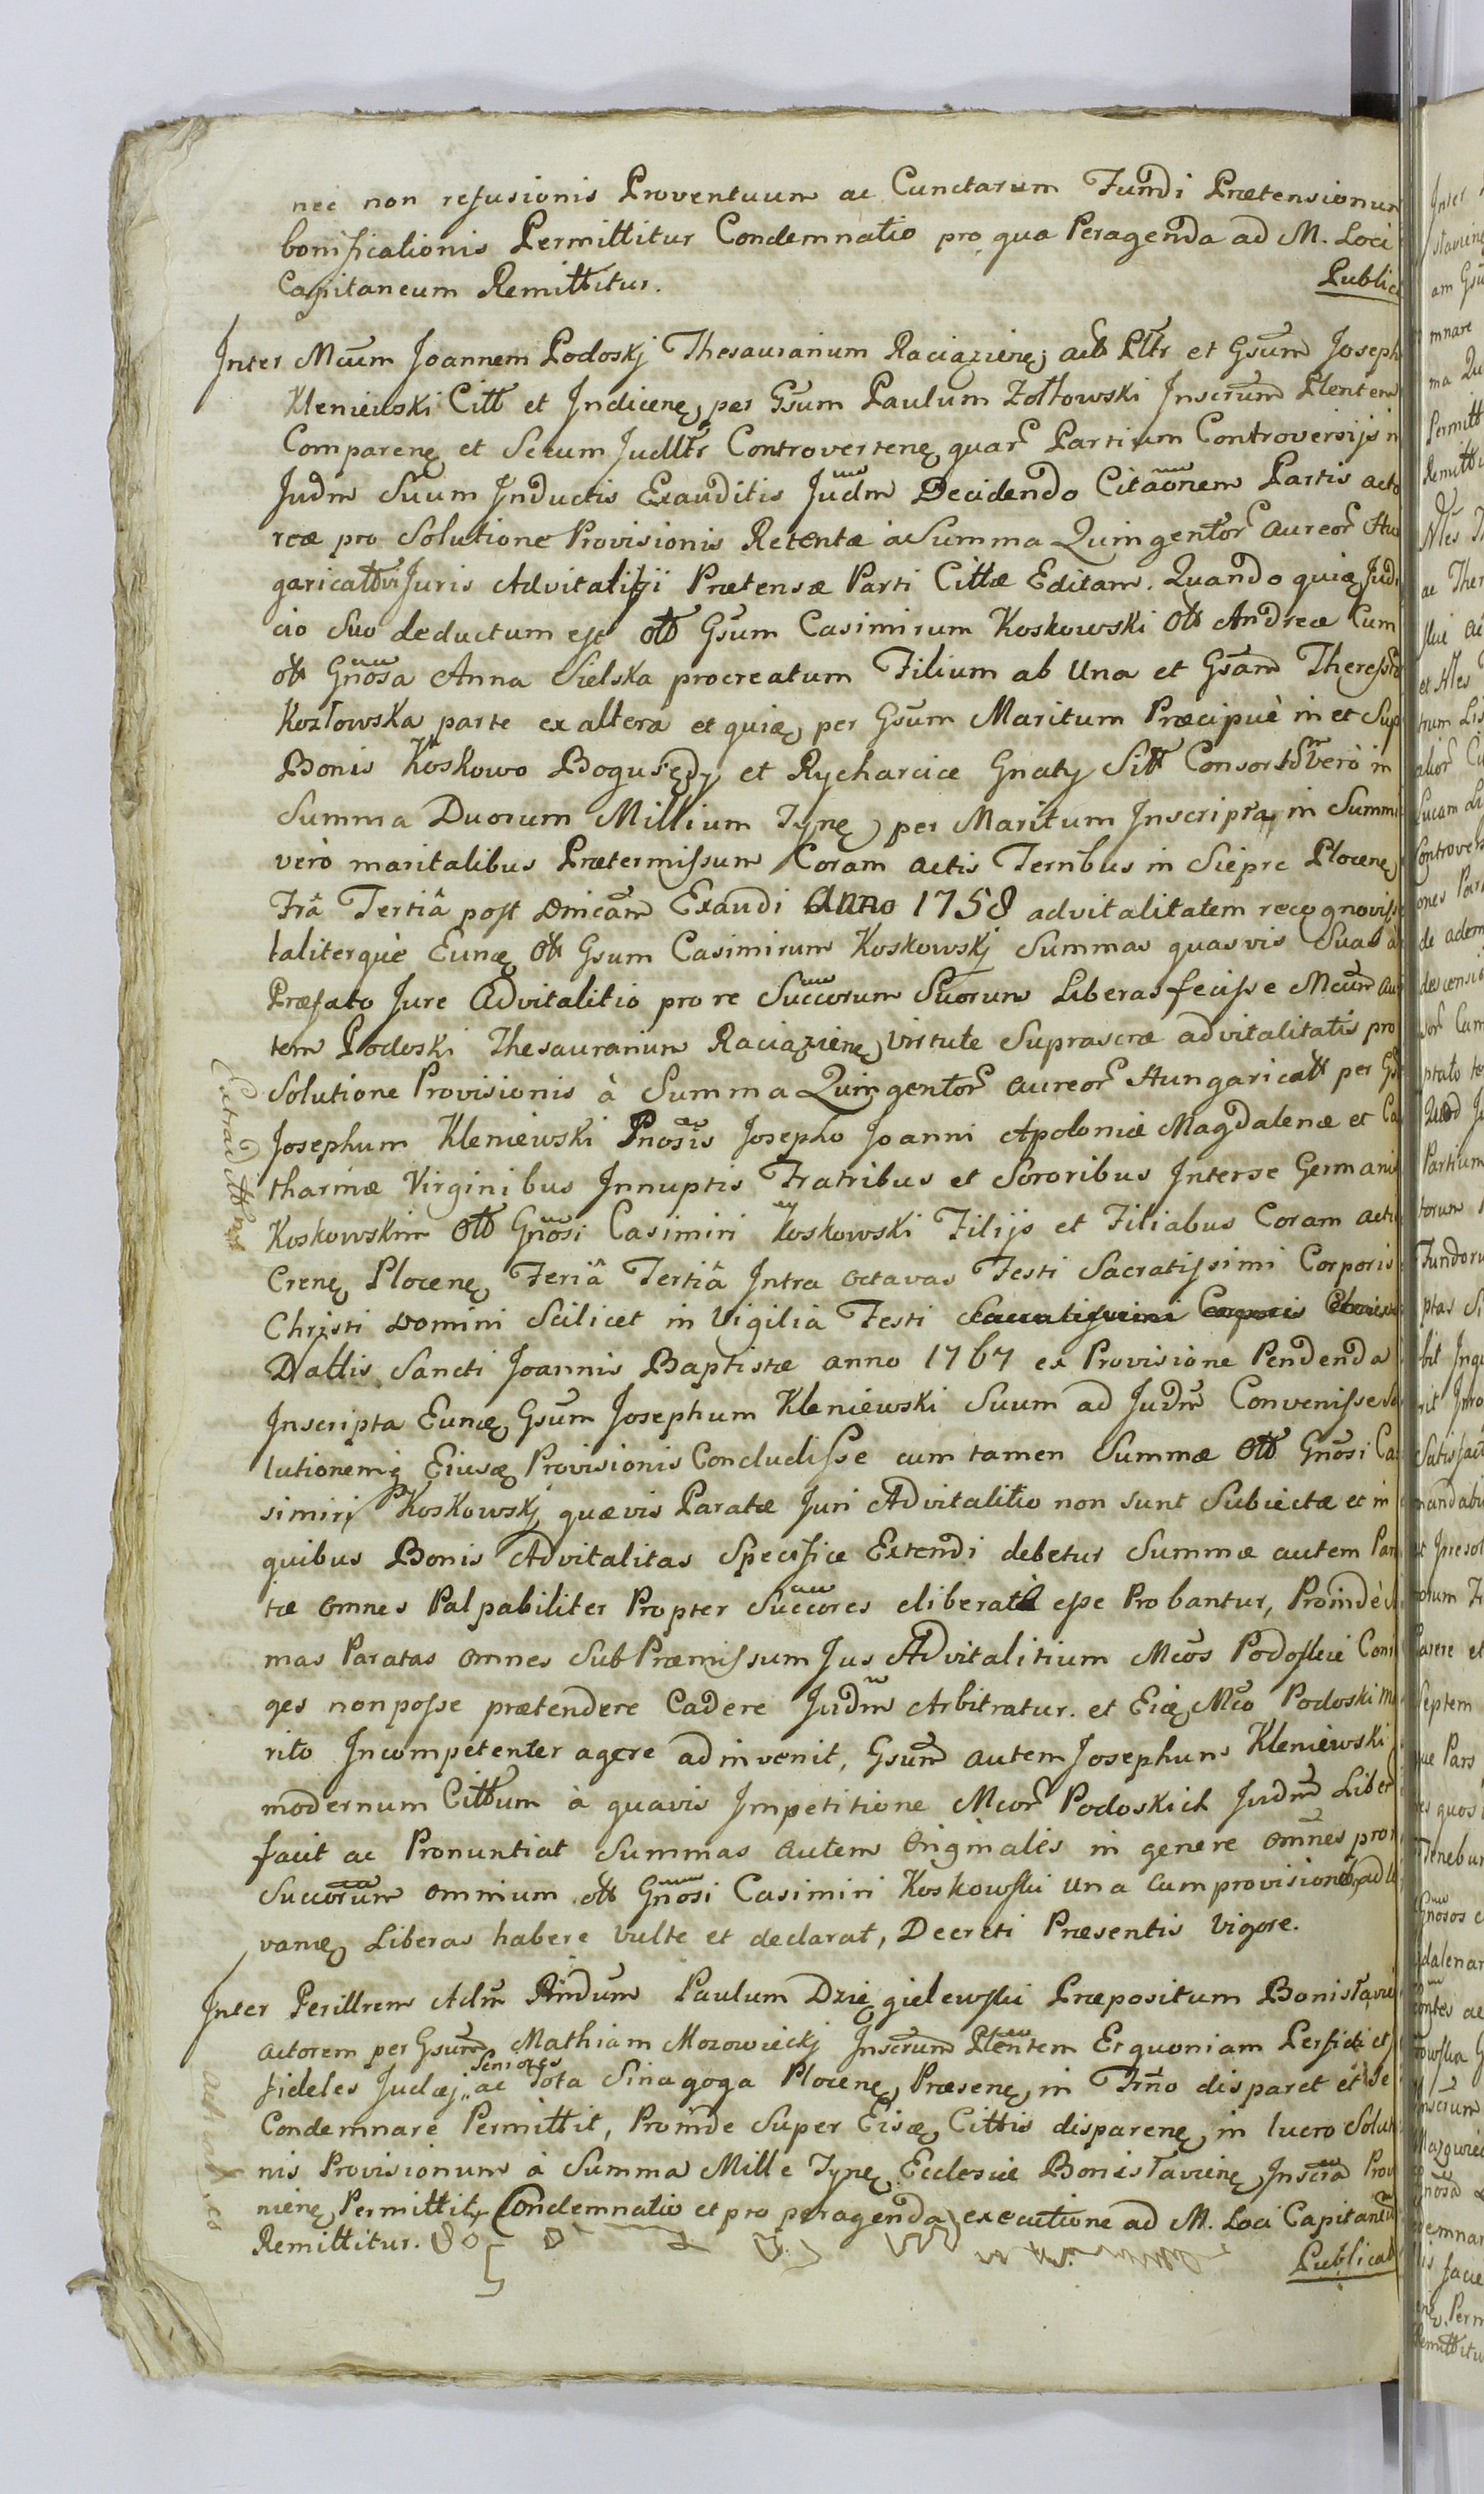 nec non refusionis Proventuum ac Cunctarum Fundi Prætensionum
bonificationis Permittitur Condemnatio pro qua Peragenda ad M. Loci
Capitaneum Remittitur.
Publica
Inter Mcum Joannem Podoskj Thesaurarium Raciązienę actt Pltr et Gsum Joseph
Kleniewski Citt et Indicenę per Gsum Paulum Zołtowski Inscrum Plentem
Comparenę et Secum Judltr Controvertenę quar Partium Controversijs in
Judm Suum Inductis Exauditis Judm Decidendo Citaonem Partis acto
reæ pro Solutione Provisionis Retentæ à Summa Quingentor aureor Hun
garicattvi Juris Advitalitii Prætensæ Parti Cittæ Editam. Quando quię Judi
cio Suo deductum est ott Gsum Casimirum Koskowski ott Andreæ Cum
ott Gnosa Anna Sielska procreatum Filium ab Una et Gsam Theressia
Kozłowska parte ex altera et quię per Gsum Maritum Præcipuè in et Sup
Bonis Koskowo Bogusędy et Rycharcice Gnaty Sitt Consortem verò in
Summa Duorum Millium Tynę per Maritum Inscripta, in Summi
verò maritalibus Prætermissum Coram actis Ternbus in Sieprc Plocenę
Friâ Tertiâ post Dnicam Exaudi Anno 1758 advitalitatem recognovisse
taliterque Eunę ott Gsum Casimirum Koskowskj Summas quasvis Suas à
Præfato Jure Advitalitio pro re Succorum Suorum Liberas fecisse Mcum au
tem Podoski Thesaurarium Raciązienę virtute Suprascræ advitalitatis pro
Solutione Provisionis à Summa Quingentor aureor Hungaricatt per Gs
Josephum Kleniewski Pnosis Josepho Joanni Apoloniæ Magdalenæ et Ca
tharinæ Virginibus Innuptis Fratribus et Sororibus Interse Germanis
Koskowskim ott Gnosi Casimiri Koskowski Filijs et Filiabus Coram actis
Crenę Plocenę Feriâ Tertiâ Intra octavas Festi Sacratissimi Corporis
Christi Domini Scilicet in Vigilia Festi Sacratissimi Corporis Christi
Dattis Sancti Joannis Baptistæ anno 1767 ex Provisione Pendenda
Inscripta Eunę Gsum Josephum Kleniewski Suum ad Judm Convenisse So
lutionemq Eiusę Provisionis Concludisse cum tamen Summæ ott Gnosi Ca
simiri Koskowskj quævis Paratæ Juri Advitalitio non sunt Subiectæ et in
quibus Bonis Advitalitas Specifice Extendi debetur Summæ autem Para
tæ omnes Palpabiliter Propter Succores eliberatæ esse Probantur, Proindè
mas Paratas omnes Sub Præmissum Jus Advitalitium Mcos Podoskie Coni
ges non posse prætendere Cadere Judm Arbitratur. et Eię Mco Podoski Me
rito Incompetenter agere adinvenit, Gsum autem Josephum Kleniewski
modernum Cittum à quavis Impetitione Mcor Podoskich Judm Liber
facit ac Pronuntiat Summas autem Originales in genere omnes pro re
Succorum omnium ott Gnosi Casimiri Koskowski Una cum provisione
vanę Liberas habere vulte et declarat, Decreti Præsentis Vigore.
Extraditt est
Inter Perillrem Adm Rndum Paulum Dzięgielewski Præpositum Bonisławie
actorem per Gsum Mathiam Mozowieckj Inscrum Plentem Et quoniam Perfidi et
Seniores
fideles Judæj ac Tota Sinagoga Plocenę Præsenę in Frno disparet et Se
Condemnare Permittit, Proinde Super Eisę Cittis disparenę in lucro Solutio
nis Provisionum à Summa Mille Tynę Ecclesiæ Bonisławienę Inscra Prov
nienę Permittitr Condemnatio et pro peragenda executione ad M. Loci Capitaneum
Remittitur.
Publicat